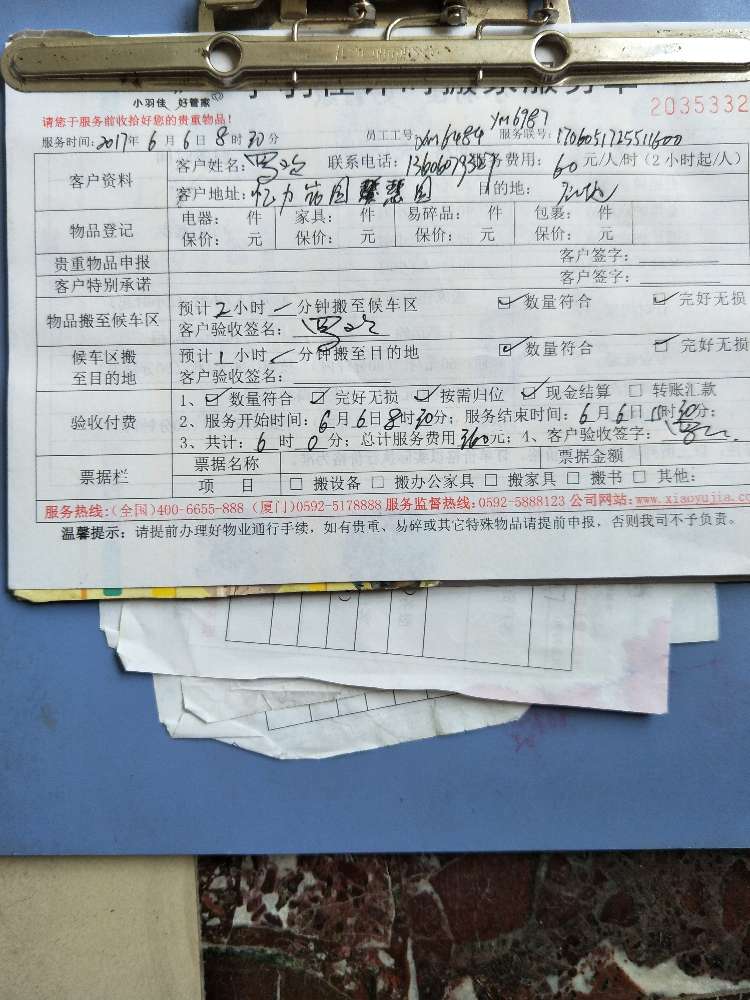 小羽佳 好管家
2035332
请您于服务前收拾好您的贵重物品!
YM6987
服务时间:2017年6月6日8时30分 员工工号: 6484 服务联号:
客户资料
客户姓名: 联系电话: 服务费用:60元/人/时(2小时起/人)
客户地址: 目的地:
物品登记
电器: 件 家具: 件 易碎品: 件 包裹: 件
保价: 元 保价: 元 保价: 元 保价: 元
贵重物品申报 客户签字:
客户特别承诺 客户签字:
物品搬至候车区
预计2小时 分钟搬至候车区 ☑数量符合 ☑完好无损
客户验收签名:
候车区搬至目的地
预计1小时 分钟搬至目的地 ☑数量符合 □完好无损
客户验收签名:
验收付费
1、☑数量符合 ☑完好无损 ☑按需归位 ☑现金结算 □转账汇款
2、服务开始时间:6月6日8时30分; 服务结束时间:6月6日 时30分;
3、共计:6时0分; 总计服务费用360元; 4、客户验收签字:
票据栏
票据名称 票据金额
项 目 □搬设备 □搬办公家具 □搬家具 □搬书 □其他:
服务热线:(全国)400-6655-888 (厦门)0592-5178888 服务监督热线:0592-5888123 公司网站:www.xiaoyujia.co
温馨提示: 请提前办理好物业通行手续,如有贵重、易碎或其它特殊物品请提前申报,否则我司不予负责。